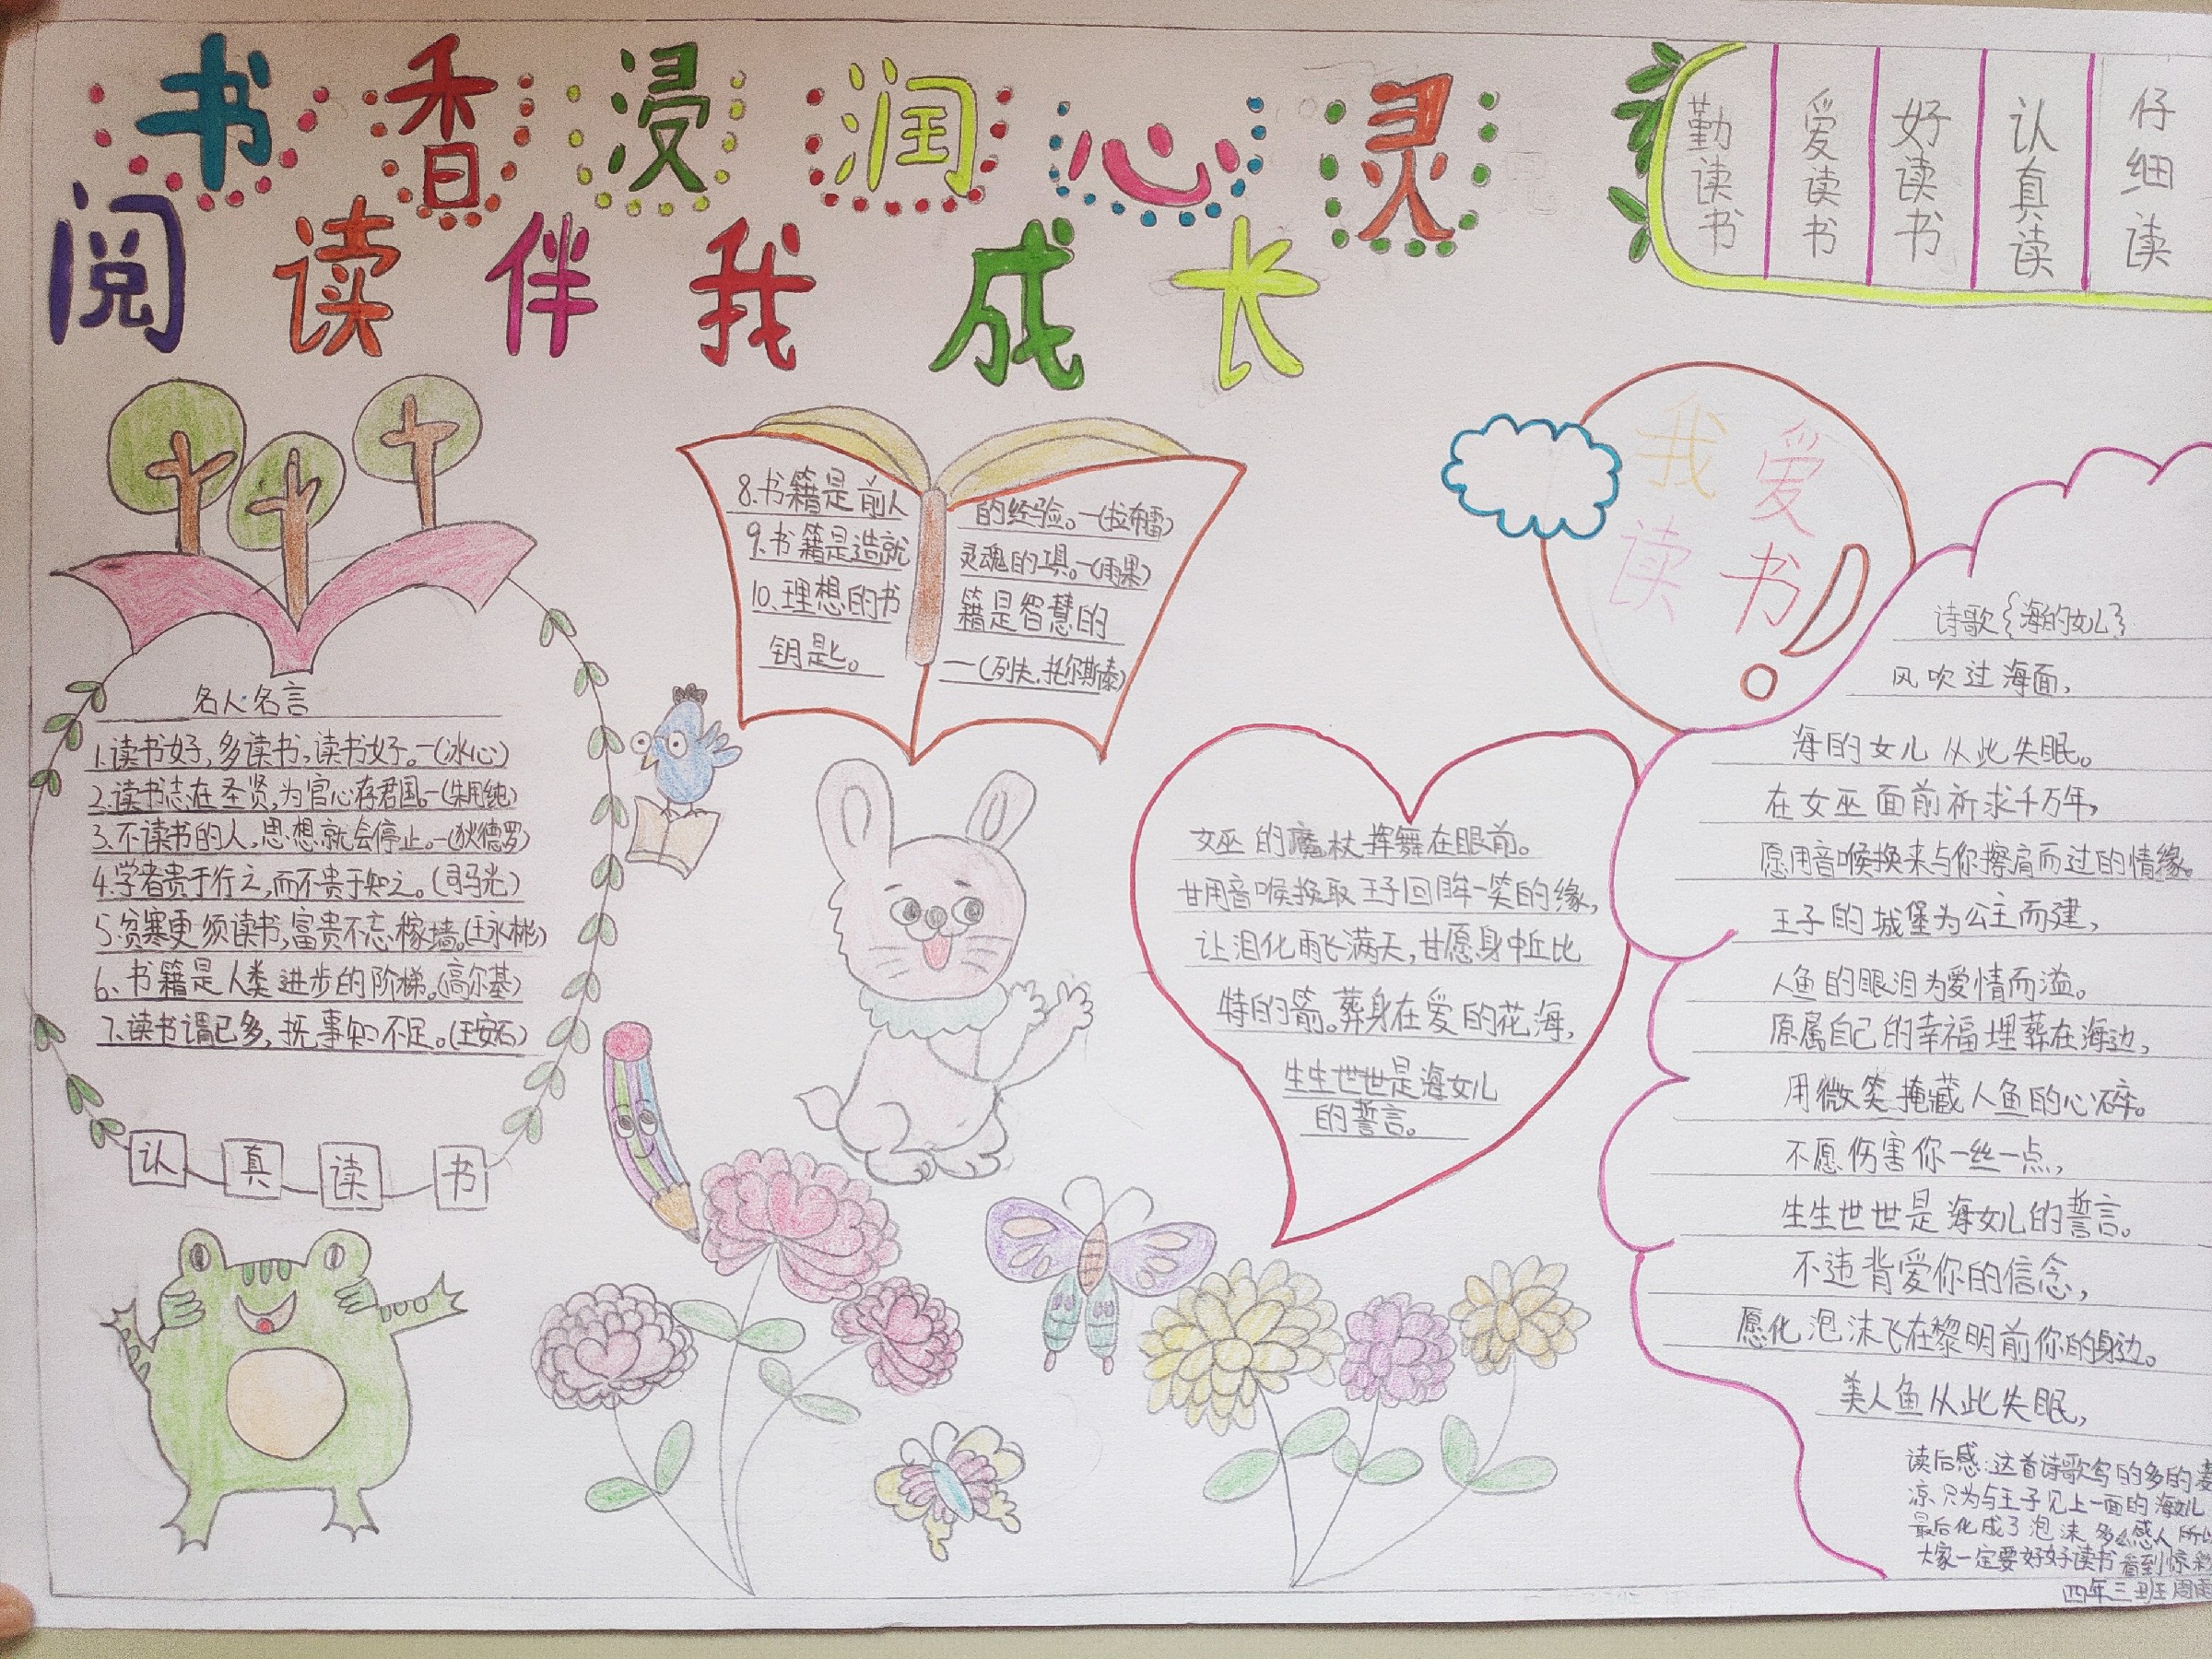 书香浸润心灵
阅读伴我成长
勤读书
爱读书
好读书
认真读
仔细读
名人名言
1.读书好,多读书,读书好。—(冰心)
2.读书志在圣贤,为官心存君国。—(朱用纯)
3.不读书的人,思想就会停止。—(狄德罗)
4.学者贵于行之,而不贵于知之。(司马光)
5.贫寒更须读书,富贵不忘稼墙。(王永彬)
6、书籍是人类进步的阶梯。(高尔基)
7.读书谓已多,抚事知不足。(王安石)
认真读书
8.书籍是前人的经验。—(拉布雷)
9.书籍是造就灵魂的工具。—(雨果)
10.理想的书籍是智慧的
钥匙。—(列夫.托尔斯泰)
我爱
读书
诗歌{海的女儿}
风吹过海面,
海的女儿从此失眠。
在女巫面前祈求千万年,
愿用音喉换来与你擦肩而过的情缘。
王子的城堡为公主而建,
人鱼的眼泪为爱情而溢。
原属自己的幸福埋葬在海边,
用微笑掩藏人鱼的心碎。
不愿伤害你一丝一点,
生生世世是海女儿的誓言。
不违背爱你的信念,
愿化泡沫飞在黎明前你的身边。
美人鱼从此失眠,
女巫的魔杖挥舞在眼前。
甘用音喉换取王子回眸一笑的缘,
让泪化雨飞满天,甘愿身中丘比
特的箭。葬身在爱的花海,
生生世世是海女儿
的誓言。
读后感:这首诗歌写的多的凄
凉、只为与王子见上一面的海女儿
最后化成了泡沫,多么感人所以
大家一定要好好读书看到惊
四年三班周